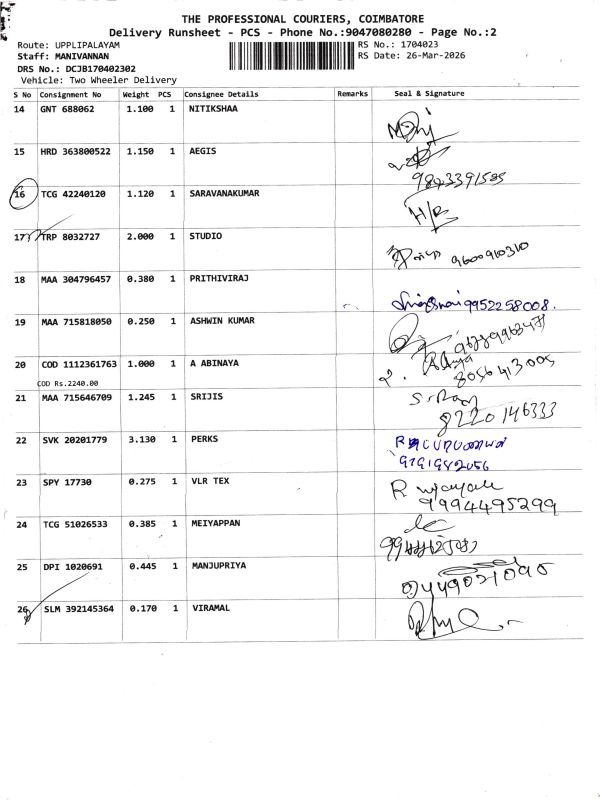 THE PROFESSIONAL COURIERS, COIMBATORE
Delivery Runsheet - PCS - Phone No.:9047080280 - Page No.:2
Route: UPPLIPALAYAM RS No.: 1704023
Staff: MANIVANNAN RS Date: 26-Mar-2026
DRS No.: DCJB170402302
Vehicle: Two Wheeler Delivery
S No Consignment No Weight PCS Consignee Details Remarks Seal & Signature
14 GNT 688062 1.100 1 NITIKSHAA
15 HRD 363800522 1.150 1 AEGIS
16 TCG 42240120 1.120 1 SARAVANAKUMAR
H/B
17 TRP 8032727 2.000 1 STUDIO
9600910310
18 MAA 304796457 0.380 1 PRITHIVIRAJ
9952258008.
19 MAA 715818050 0.250 1 ASHWIN KUMAR
20 COD 1112361763 1.000 1 A ABINAYA
8056413005
COD Rs.2240.00
21 MAA 715646709 1.245 1 SRIJIS
8220146333
22 SVK 20201779 3.130 1 PERKS
23 SPY 17730 0.275 1 VLR TEX
9994495299
24 TCG 51026533 0.385 1 MEIYAPPAN
25 DPI 1020691 0.445 1 MANJUPRIYA
26 SLM 392145364 0.170 1 VIRAMAL